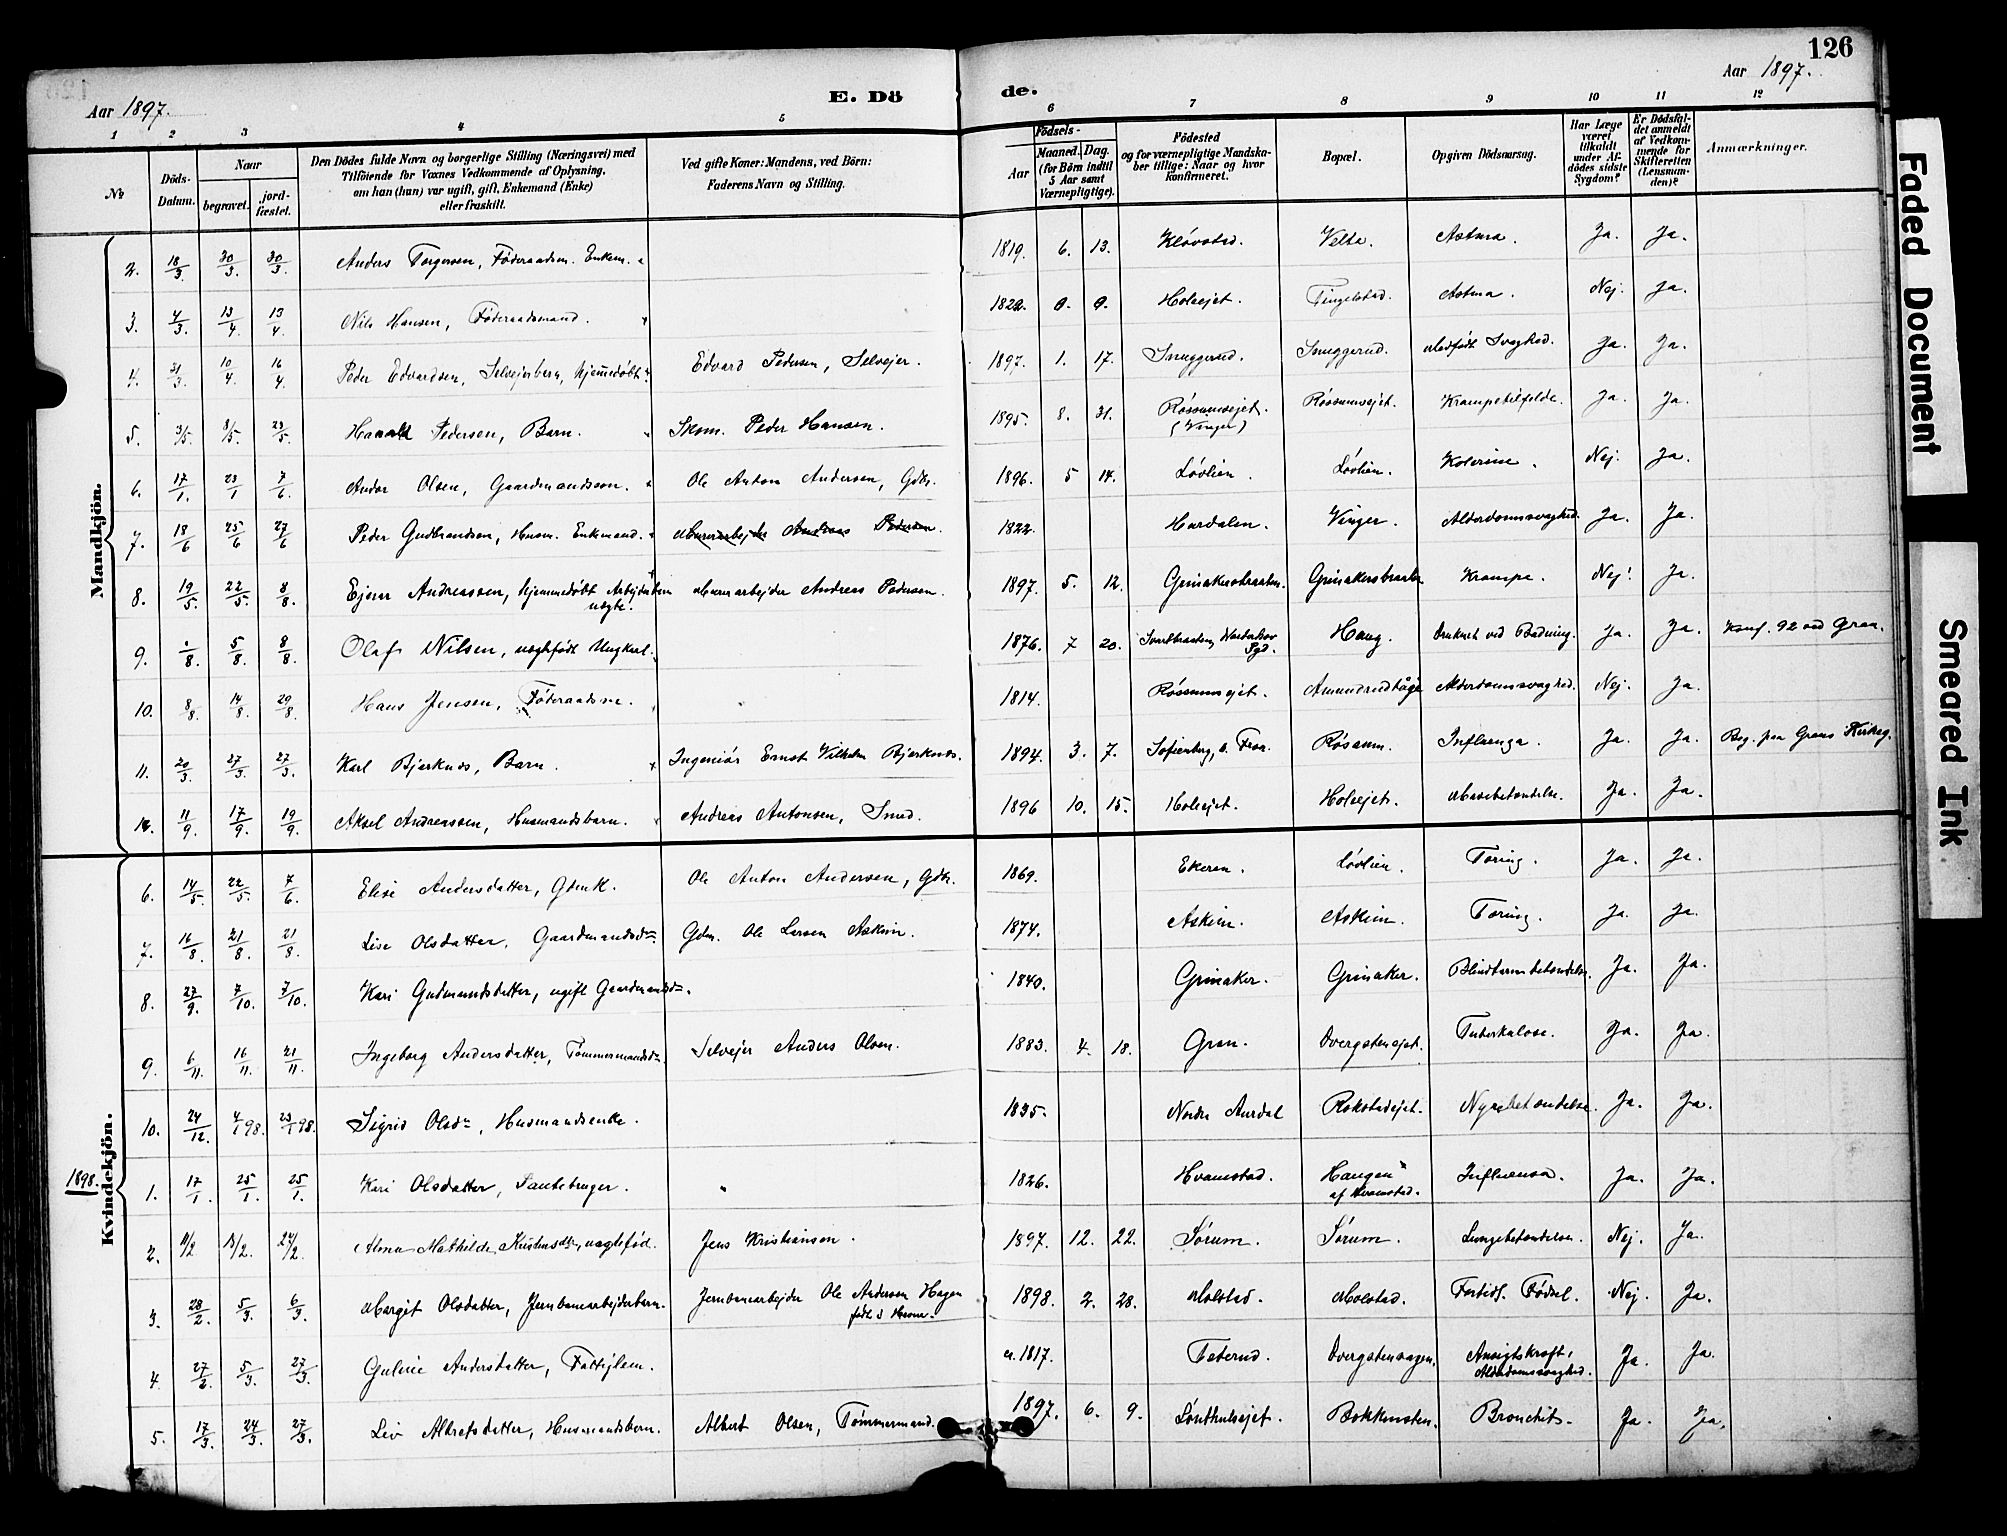 126
Aar 1897.
E. Dö de.
Aar 1897.
1 2 3 4 5 6 7 8 9 10 11 12
№
Döds-Datum.
Naar
begravet. jord-fæstet.
Den Dödes fulde Navn og borgerlige Stilling (Næringsvei) med
Tilföiende for Voxnes Vedkommende af Oplysning,
om han (hun) var ugift, gift, Enkemand (Enke)
eller fraskilt.
Ved gifte Koner: Mandens, ved Börn:
Faderens Navn og Stilling.
Födsels-
Aar Maaned. Dag.
(for Börn indtil
5 Aar samt
Værnepligtige).
Födested
og for værnepligtige Mandska-
ber tillige: Naar og hvor
konfirmeret.
Bopæl.
Opgiven Dödsaarsag.
Har Læge
været
tilkaldt
under Af-
dödes sidste
Sygdom?
Er Dödsfal-
det anmeldt
af Vedkom-
mende for
Skifteretten
(Lensman-
den)?
Anmærkninger.
Mandkjön.
2. 18/3 30/3. 30/3. Anders Torgersen, Föderaadsm. Enkem. 1819. 6. 13. Kløvstad. Velta. Astma. Ja. Ja.
3. 4/3. 13/4. 13/4. Nils Hansen, Föderaadsmand. 1822. 9. 9. Holsejet. Tingelstad. Astma. Nej. Ja.
4. 31/3. 10/4. 16/4. Peder Edvardsen, Selvejerbarn, hjemmedøbt Edvard Pedersen, Selvejer. 1897. 1. 17. Snuggerud. Snuggerud. Medfødt Svaghed. Ja. Ja.
5. 3/5. 8/5. 23/5. Harald Pedersen, Barn. Skom. Peder Hansen. 1895. 8. 31. Røssumsejet. Røssumsejet. Krampetilfelde. Ja. Ja.
(Vinger)
6. 17/1. 23/1 7/6. Andor Olsen, Gaardmandssøn. Ole Anton Andersen, Gdbr. 1896. 5 14. Løvlien. Løvlien. Kolerine. Nej. Ja.
7. 18/6 25/6 27/6 Peder Gudbrandsen, Husm. Enkmand. Murerarbejder Andreas Pedersen. 1822. Hurdalen. Vinger. Alderdomssvaghed. Ja. Ja.
8. 19/5. 22/5. 8/8. Ejnar Andreassen, hjemmedøbt Arbejderbarn Murerarbejder Andreas Pedersen. 1897. 5. 12. Grinakersbraaten. Grinakersbraaten Krampe. Nej. Ja.
uægte.
9. 1/8. 5/8. 8/8. Olaf Nilsen, uægtefødt Ungkarl. 1876. 7 20. Haug. Druknet ved Badning. Ja. Ja. Konf. 92 ved Gran.
10. 8/8. 14/8. 29/8. Hans Jensen, Föderaadsm. 1814. Røssumsejet. Amundrudhågå Alderdomssvaghed. Nej. Ja.
11. 20/3. 27/3. 27/3. Karl Bjerknes, Barn. Ingeniør Ernst Vilhelm Bjerknes. 1894. 3. 7. Sofienberg, v. Fron. Røssum. Influenza. Ja. Ja. Beg. paa Grans Kirkeg.
12. 11/9. 17/9. 19/9. Aksel Andreassen, Husmandsbarn. Andreas Antonsen, Smed. 1896 10. 15. Holsejet. Holsejet. Mavebetændelse. Ja. Ja.
Kvindekjön.
6. 14/5. 22/5. 7/6. Elise Andersdatter, Gdmk. Ole Anton Andersen, Gdbr. 1869. Ekeren. Løvlien. Tæring. Ja. Ja.
7. 16/8. 21/8. 21/8. Lise Olsdatter, Gaardmandsdtr. Gdm. Ole Larsen Askim. 1874. Askim. Askim. Tæring. Ja. Ja.
8. 27/9. 7/10. 7/10. Kari Gudmundsdatter, ugift Gaardmandsdtr. 1840. Grinaker. Grinaker. Blindtarmbetændelse. Ja. Ja.
9. 6/11. 16/11. 21/11. Ingeborg Andersdatter, Tømmermandsdtr. Selvejer Anders Olsen. 1883. 4. 18. Gran. Dvergstensejet. Tuberkulose. Ja. Ja.
10. 24/12. 4/1 98. 23/1 98. Sigrid Olsdtr, Husmandsenke. 1835. Nordre Aurdal Rokstadejet. Nyrebetændelse. Ja. Ja.
1898.
1. 17/1. 25/1. 25/1. Kari Olsdatter, Lautebruger. 1826. Hvamstad. Haugen Influensa. Ja. Ja.
af Hvamstad.
2. 11/2 13/2. 24/2. Alma Mathilde Kristensdtr, uægtefød. Jens Kristiansen. 1897. 12. 22. Sørum. Sørum. Lungebetændelse. Nej. Ja.
3. 28/2. 5/3. 6/3. Margit Olsdatter, Jernbanearbejderbarn. Jernbanearbejder Ole Anderson Hagen 1898. 2. 28. Molstad. Molstad. Fortids. Fødsel. Nej. Ja.
4. 27/2. 5/3. 27/3. Guline Andersdatter, Fattiglem. ca. 1817. Teterud. Dvergstenhagen. Ansigtskræft, Ja. Ja.
Alderdomssvaghed.
5. 17/3. 24/3. 27/3. Liv Albretsdatter, Husmandsbarn. Albert Olsen, Tømmermand. 1897. 6. 9. Bokkusten. Bronchit. Ja. Ja.
Faded Document
Smeared Ink